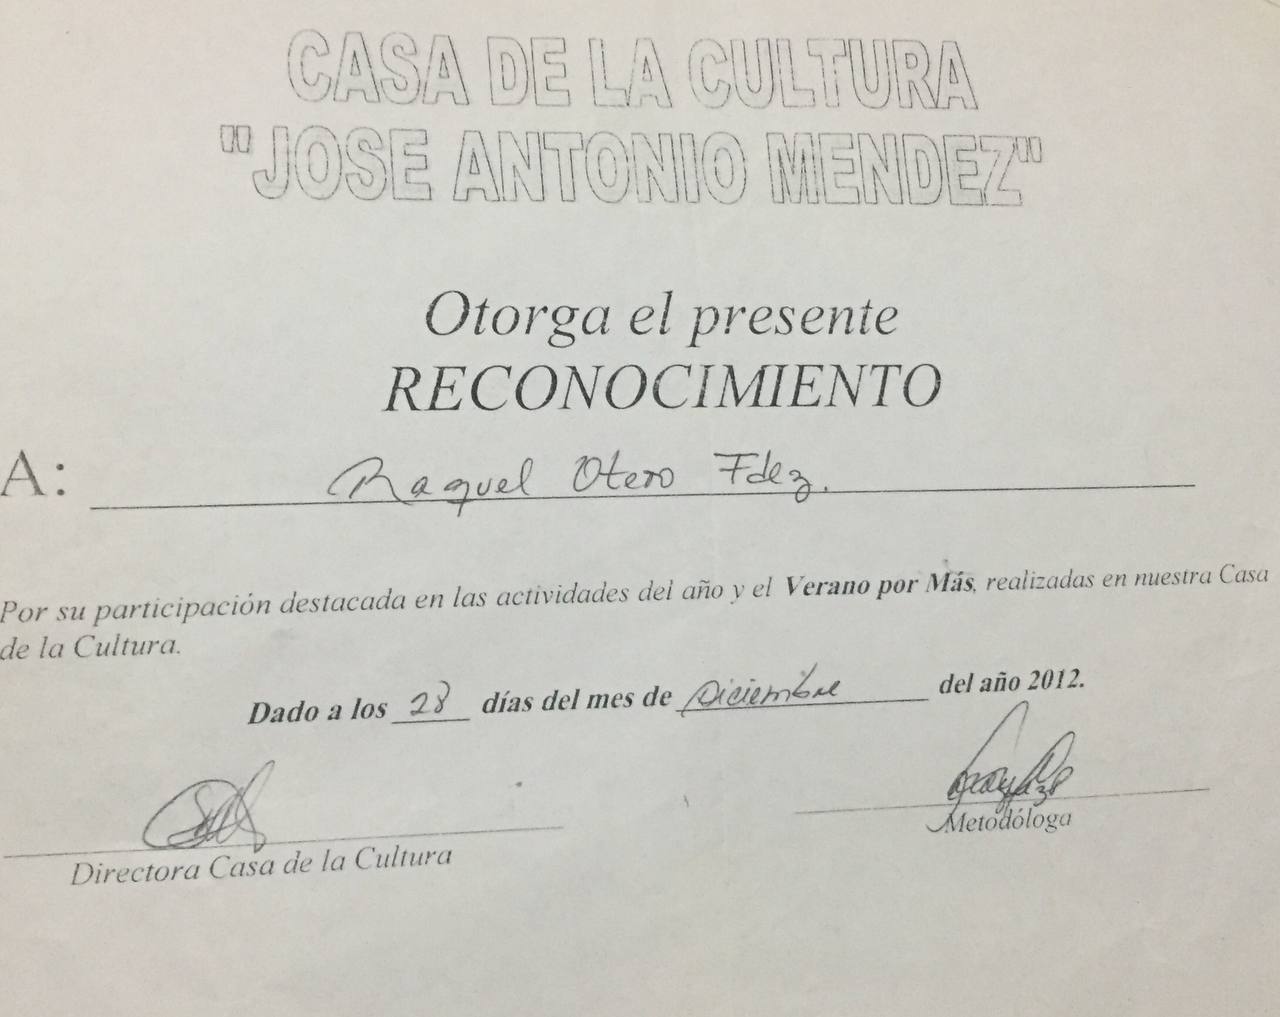 CASA DE LA CULTURA
"JOSE ANTONIO MENDEZ"
Otorga el presente
RECONOCIMIENTO
A: Raquel Otero Fdez.
Por su participación destacada en las actividades del año y el Verano por Más, realizadas en nuestra Casa
de la Cultura.
Dado a los 28 días del mes de Diciembre del año 2012.
Directora Casa de la Cultura
Metodóloga